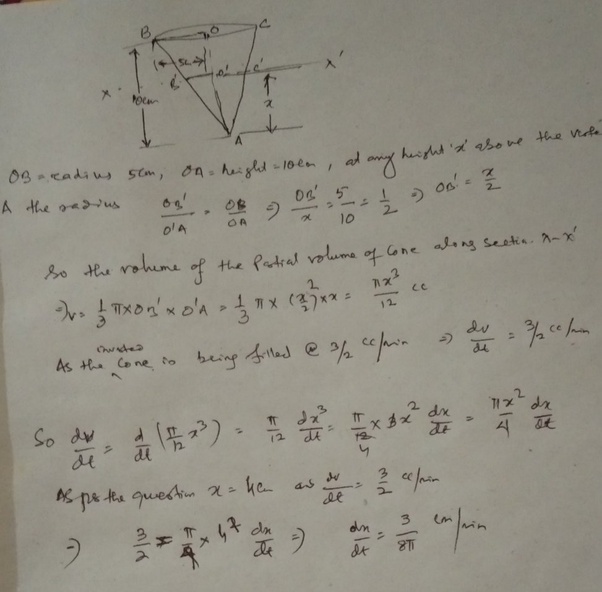 B O C
5cm
B' O' C' X'
X
10cm
x
A
OB = radius 5cm, OA = height = 10cm, at any height 'x' above the
A the radius OB'/O'A = OB/OA ⇒ OB'/x = 5/10 = 1/2 ⇒ OB' = x/2
So the volume of the Partial volume of Cone along section X-X'
⇒ v = 1/3 π × OB'² × O'A = 1/3 π × (x/2)² × x = πx³/12 cc
As the inverted Cone is being filled @ 3/2 cc/min ⇒ dv/dt = 3/2 cc/min
So dv/dt = d/dt (π/12 x³) = π/12 dx³/dt = π/12 × 3x² dx/dt = πx²/4 dx/dt
4
As per the question x = 4cm as dv/dt = 3/2 cc/min
⇒ 3/2 = π/4 × 4² dx/dt ⇒ dx/dt = 3/8π cm/min